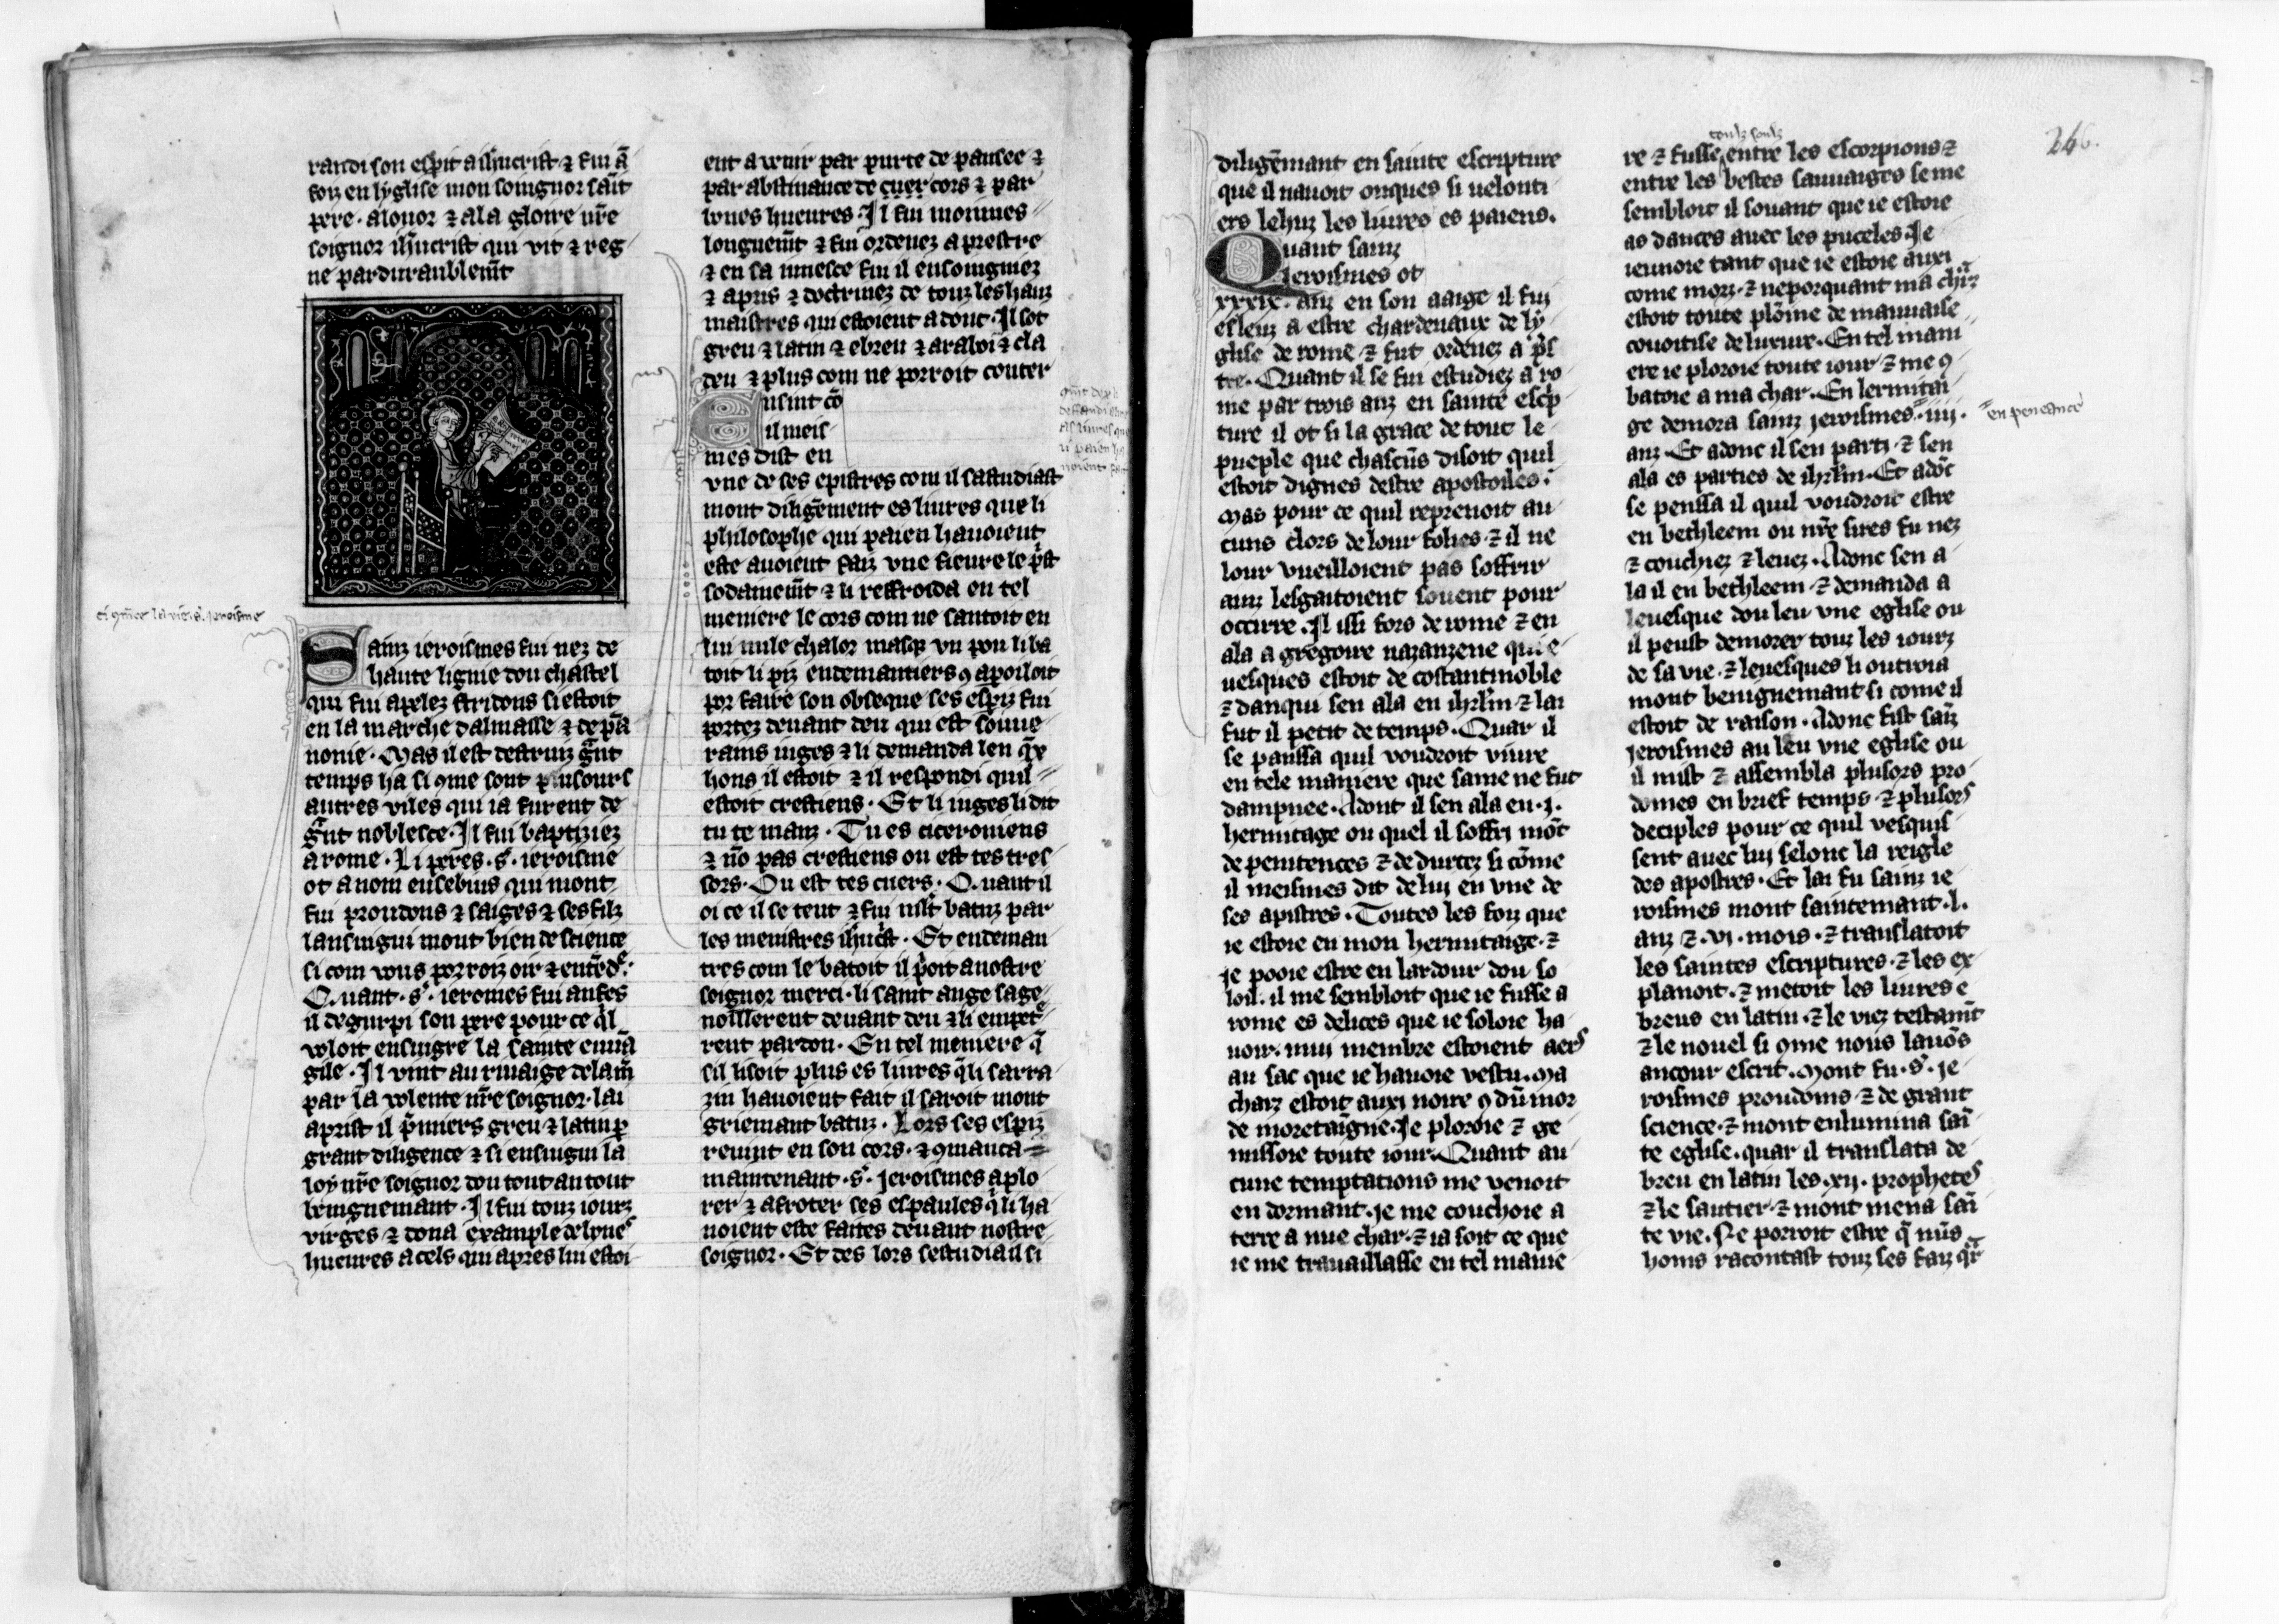 randi son esperit a ihucrist ⁊ fui ā
foy en lyglise mon soingnor saīt
pere. alonor ⁊ ala gloire nr̄e
soignor ihūcrist qui vit ⁊ reg
ne pardurablem̄t
ci ꝯm̄ce la vie .s. jeroisme
Sainz ieroismes fui nez de
haute lignie dou chastel
qui fui apelez stridons si estoit
en la marche dalmasse ⁊ de pā
nonie. Mas il est destruiz gn̄t
temps ha si ꝯme sont plusours
autres viles qui ia furent de
gn̄t noblesce. Il fui baptiziez
a rome. Li peres .s. ieroisme
ot a nom eusebius qui mont
fui proudons ⁊ saiges ⁊ ses filz
lansuigui mout bien de science
si com vous porroiz oir ⁊ entēdͤ.
Quant .s. ieromes fui anfes
il degurpi son pere pour ce ql
voloit ensuigre la sainte euuā
gile. Il vint au riuaige de lam̄
par la volente nr̄e soignor. lai
aprist il pͥmiers greu ⁊ latin ꝑ
grant diligence ⁊ si ensuigui la
loy nr̄e soignor dou tout au tout
benignemant. Il fui touz iourz
virges ⁊ dona example de bones
hueures a cels qui apres lui estoi
ent a venir par purte de pansee ⁊
par abstinance de cuer cors ⁊ par
bones hueures. Il fui moinnes
longuem̄t ⁊ fui ordenez a prestre
⁊ en sa iunesce fui il ensoingniez
⁊ apris ⁊ doctrinez de touz les hauz
maistres qui estoient adont. Il sot
greu ⁊ latin ⁊ ebreu ⁊ araboi ⁊ cla
deu ⁊ plus com ne porroit conter
Ensint cō
il meis
mes dist en
vne de ses epistres com il sastudiast
mont diligēment es liures que li
philosophe qui paien hauoient
este auoient faiz vne fieure le pͥst
sodainem̄t ⁊ li reffroida en tel
meniere le cors com ne santoit en
lui nule chalor masqꝫ vn pou li ba
toit li piz endemantiers ꝯ aporloit
por faire son obseque ses esperiz fui
portez deuant deu qui est souue
rains iuges ⁊ li demanda len qͤx
hons il estoit ⁊ il respondi quil
estoit crestiens. Et li iuges li dit
tu te manz. Tu es ciceroniens
⁊ nō pas crestiens ou est tes tres
sors. Ou est tes cuers. Quant il
oi ce il se teut ⁊ fui mlt̄ batuz par
les menistres ihūcͥst. Et endeman
tres com le batoit il pͥoit a nostre
soignor merci. li saint ange sage
noillerent deuant deu ⁊ li empetͤ
rent pardon. En tel meniere q̄
sil lisoit plus es liures qͥ li sarra
zin hauoient fait il saroit mont
griemant batuz. Lors ses esperiz
reuint en son cors. ⁊ ꝯmanca
maintenant .s. jeroismes a plo
rer ⁊ a froter ses espaules qͥ li ha
uoient este faites deuant nostre
soignor. Et des lors sestudia il si
246.
diligēmant en sainte escripture
que il nauoit onques si uelonti
ers lehuz les liures es paiens.
Quant sainz
Jeroismes ot
xxxix. anz en son aaige il fui
esleuz a estre chardenaux de ly
glise de rome ⁊ fut ordenez a pͥs
tre. Quant il se fui estudiez a ro
me par trois anz en sainte escͥp
ture il ot si la grace de tout le
pueple que chascūs disoit quil
estoit dignes destre apostoiles.
Mas pour ce quil reprenoit au
cuns clers de lour folies. ⁊ il ne
lour vueilloient pas soffrir
anz lesgaitoient souent pour
occirre. Il issi fors de rome ⁊ en
ala a gregoire nazanzene qui e
uesques estoit de costantinoble
⁊ danqui sen ala en ihrl̄m ⁊ lai
fut il petit de temps. Quar il
se panssa quil voudroit viure
en tele maniere que same ne fut
dampnee. Adont il sen ala en .j.
hermitage ou quel il soffri mōt
de penitences ⁊ de durtez si cōme
il meismes dit de luy en vne de
ses apistres. Toutes les foiz que
ie estoie en mon hermitaige. ⁊
je pooie estre en lardour dou so
loil. il me sembloit que ie fusse a
rome es delices que ie soloie ha
uoir. mui membre estoient aers
au sac que ie hauoie vestu. Ma
charz estoit auxi noire ꝯ dū mor
de moretaigne. Je ploroie ⁊ ge
missoie toute iour. Quant au
cune temptations me venoit
en dormant. je me couchoie a
terre a nue char. ⁊ ia soit ce que
ie me trauaillasse en tel manie
re ⁊ fusse entre les escorpions ⁊
entre les bestes sauuaiges se me
sembloit il souant que ie estoie
as dances auec les puceles. Je
ieunoie tant que ie estoie auxi
come morz. ⁊ neporquant ma chͣrz
estoit toute plōine de mauuaise
couoitise de luxure. En tel mani
ere ie ploroie toute iour ⁊ me ꝯ
batoie a ma char. En lermitai
ge demora sainz jeroismes .iiij.
en peneance
anz. Et adonc il sen parti. ⁊ sen
ala es parties de ihrl̄m. Et adōc
se penssa il quil voudroit estre
en bethleem ou nr̄e sires fu nez
⁊ couchiez ⁊ leuez. Adonc sen a
la il en bethleem ⁊ demanda a
leuesque dou leu vne eglise ou
il peust demorer touz les iourz
de sa vie. ⁊ leuesques li outroia
mont benignemant si come il
estoit de raison. Adonc fist saīz
jeroismes au leu vne eglise ou
il mist ⁊ assembla plusors pro
domes en brief temps. ⁊ plusors
deciples pour ce quil vesquis
sent auec luy selonc la reigle
des apostres. Et lai fu sainz ie
roismes mont saintemant .l.
anz ⁊ .vj. mois. ⁊ translatoit
les saintes escriptures. ⁊ les ex
planoit. ⁊ metoit les liures e
breus en latin. ⁊ le viez testam̄t
⁊ le nouel si ꝯme nous lauōs
ancour escrit. Mont fu .s. je
roismes proudoms ⁊ de grant
science. ⁊ mont enlumina saī
te eglise. quar il translata de
breu en latin les .xij. prophetes
⁊ le sautier. ⁊ mont mena saī
te vie. Ne porroit estre q̄ nūs
homs racontast touz ses faiz qͣr